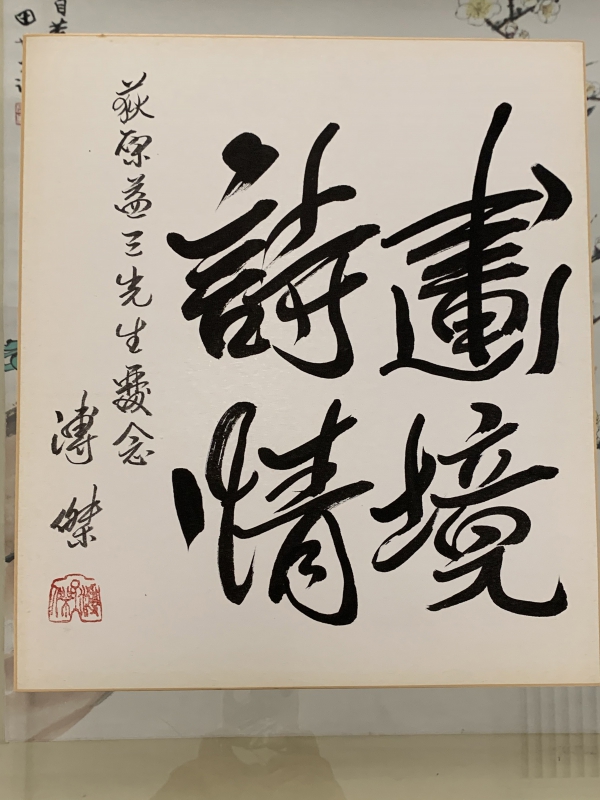 畫境
詩情
荻原益三先生念
溥傑